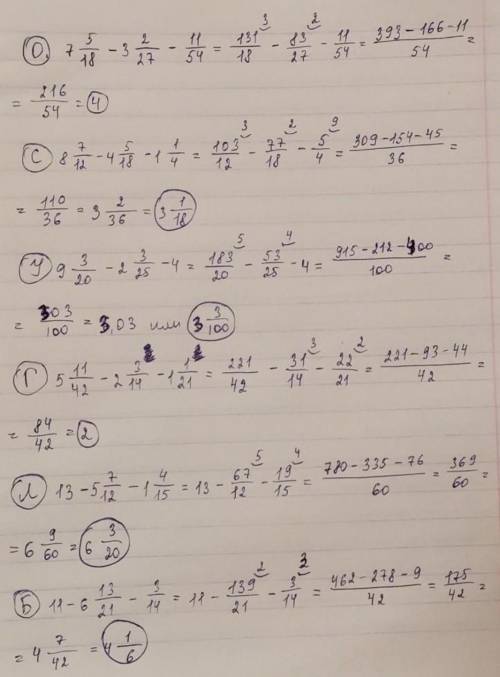 О. 7 5/18 - 3 2/27 - 11/54 = 131/18 (3) - 83/27 (2) - 11/54 = (393 - 166 - 11)/54 =
= 216/54 = 4
С 8 7/12 - 4 5/18 - 1 1/4 = 103/12 (3) - 77/18 (2) - 5/4 (9) = (309 - 154 - 45)/36 =
= 110/36 = 3 2/36 = 3 1/18
У 9 3/20 - 2 3/25 - 4 = 183/20 (5) - 53/25 (4) - 4 = (915 - 212 - 400)/100 =
= 303/100 = 3,03 или 3 3/100
Г 5 11/42 - 2 3/14 - 1 1/21 = 221/42 - 31/14 (3) - 22/21 (2) = (221 - 93 - 44)/42 =
= 84/42 = 2
Л 13 - 5 7/12 - 1 4/15 = 13 - 67/12 (5) - 19/15 (4) = (780 - 335 - 76)/60 = 369/60 =
= 6 9/60 = 6 3/20
Б 11 - 6 13/21 - 3/14 = 11 - 139/21 (2) - 3/14 (3) = (462 - 278 - 9)/42 = 175/42 =
= 4 7/42 = 4 1/6